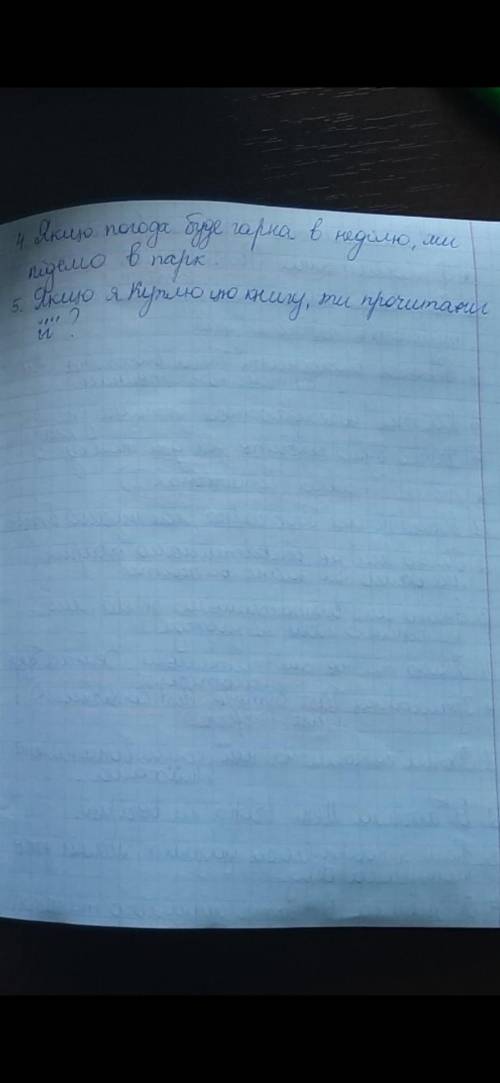 4. Якщо погода буде гарна в неділю, ми
підемо в парк.
5. Якщо я куплю цю книгу, ти прочитаєш
її?